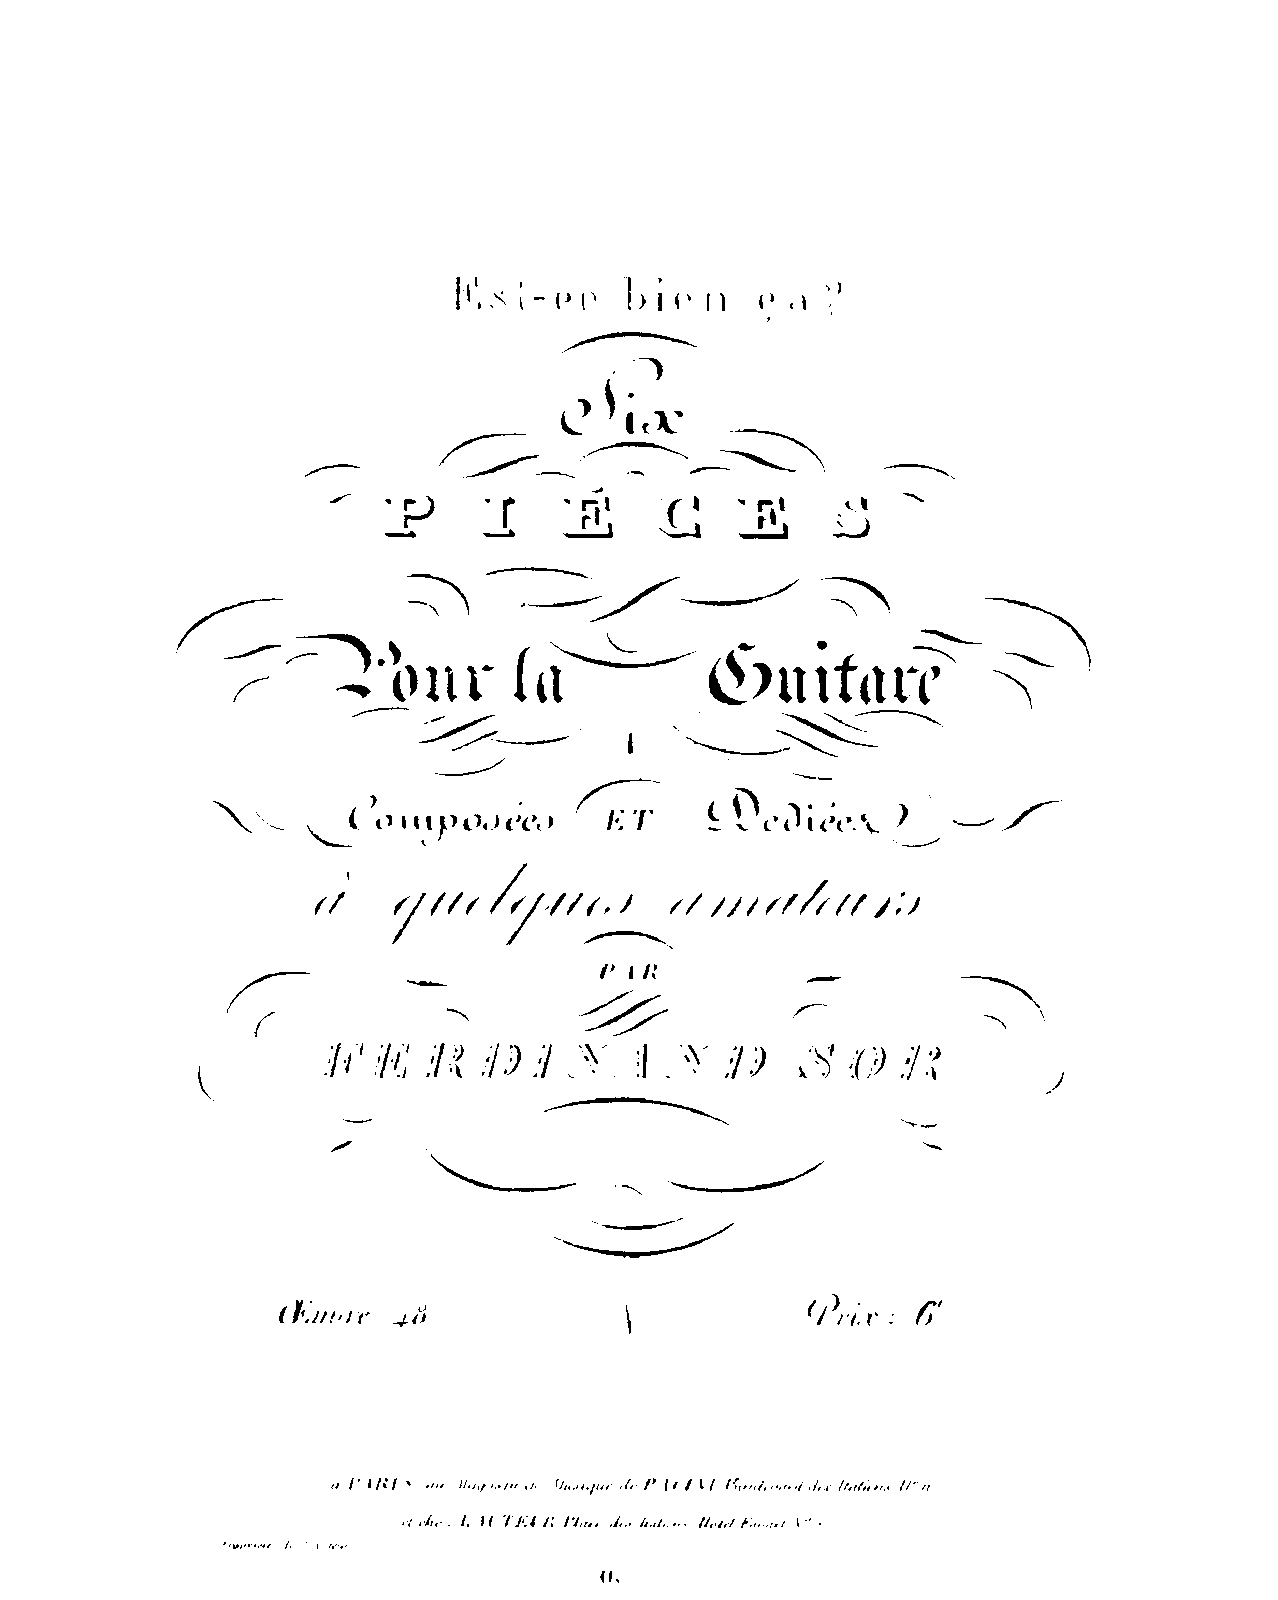 Est-ce bien ça?
Six
PIÉCES
Pour la Guitare
Composées ET Dediées
à quelques amateurs
PAR
FERDINAND SOR
Œuvre 48 Prix: 6
à PARIS au Magasin de Musique de PACINI Boulevard des Italiens N° 11
et chez L'AUTEUR Place des Italiens Hotel Favart N°